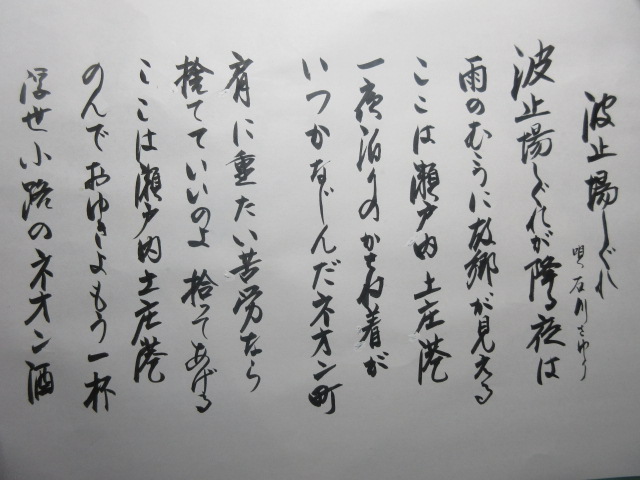 波止場しぐれ
唄 石川さゆり
波止場しぐれが降る夜は
雨のむこうに故郷が見える
ここは瀬戸内 土庄港
一夜泊りのかさね着が
いつかなじんだネオン町
肩に重たい苦労なら
捨てていいのよ 拾てあげる
ここは瀬戸内土庄港
のんでおゆきよもう一杯
浮世小路のネオン酒